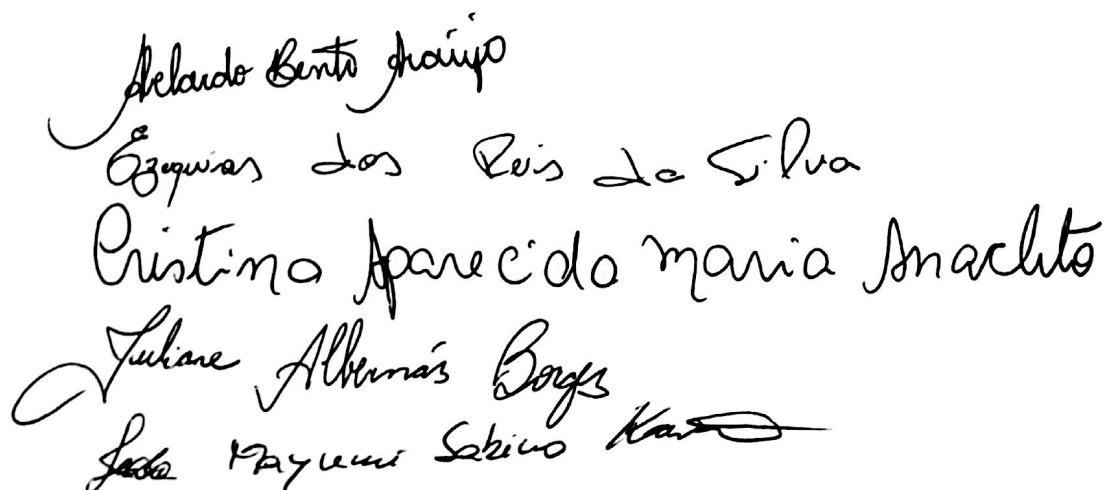 Abelardo Bento Araújo
Ezequias dos Reis da Silva
Cristina Aparecida Maria Anacleto
Juliane Albernás Borges
Mayumi Sabino